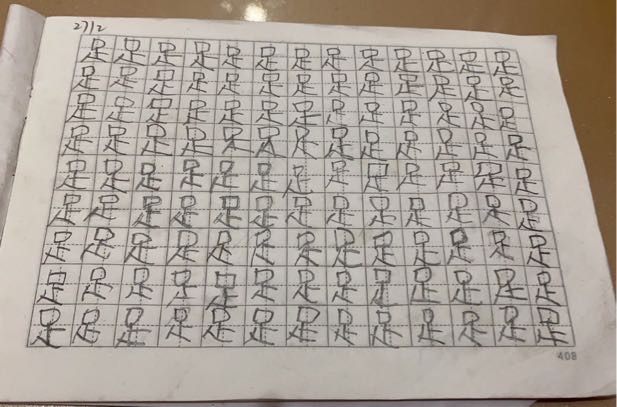 27/2
足足足足足足足足足足足足足
足足足足足足足足足足足足足
足足足足足足足足足足足足足
足足足足足足足足足足足足足
足足足足足足足足足足足足足
足足足足足足足足足足足足足
足足足足足足足足足足足足足
足足足足足足足足足足足足足
足足足足足足足足足足足足足
408